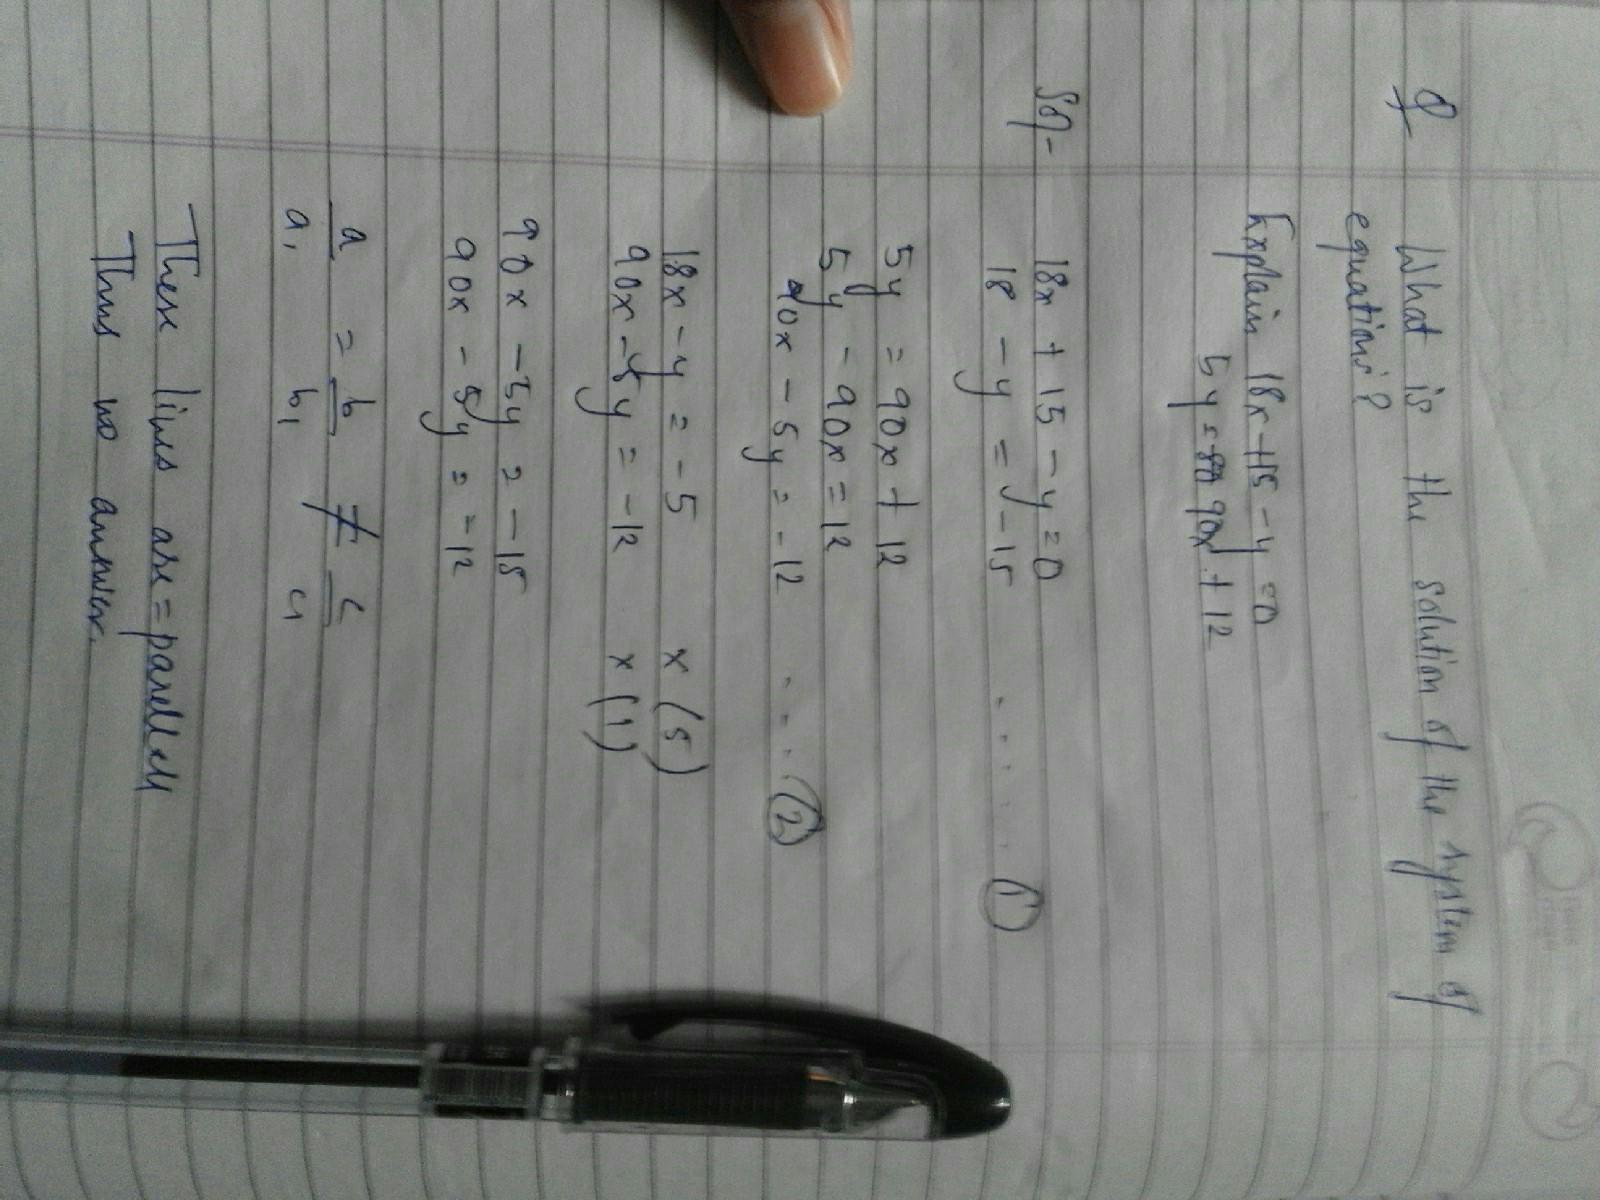 Q What is the solution of the system of
equations?
Explain 18x + 15 - y = 0
5y = 90x + 12
Sol- 18x + 15 - y = 0
18 - y = -15 . . . . . . (1)
5y = 90x + 12
5y - 90x = 12
90x - 5y = -12 . . . . (2)
18x - y = -5 x (5)
90x - 5y = -12 x (1)
90x - 5y = -15
90x - 5y = -12
a = b ≠ c
a1 b1 c1
These lines are = parellell
Thus no answer.